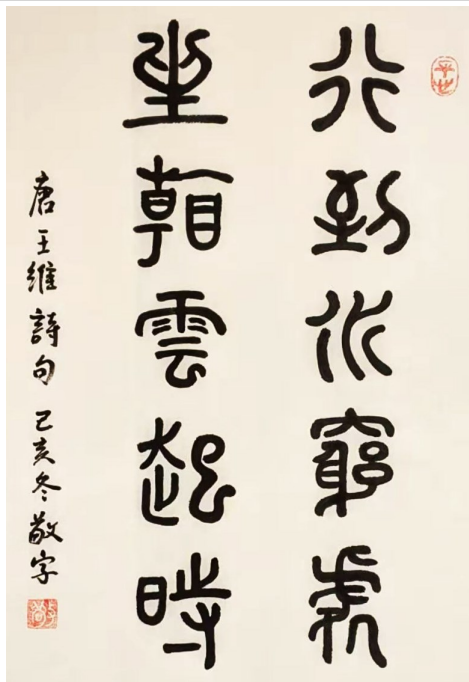 行到水窮處
坐看雲起時
唐王維詩句 己亥冬敬字